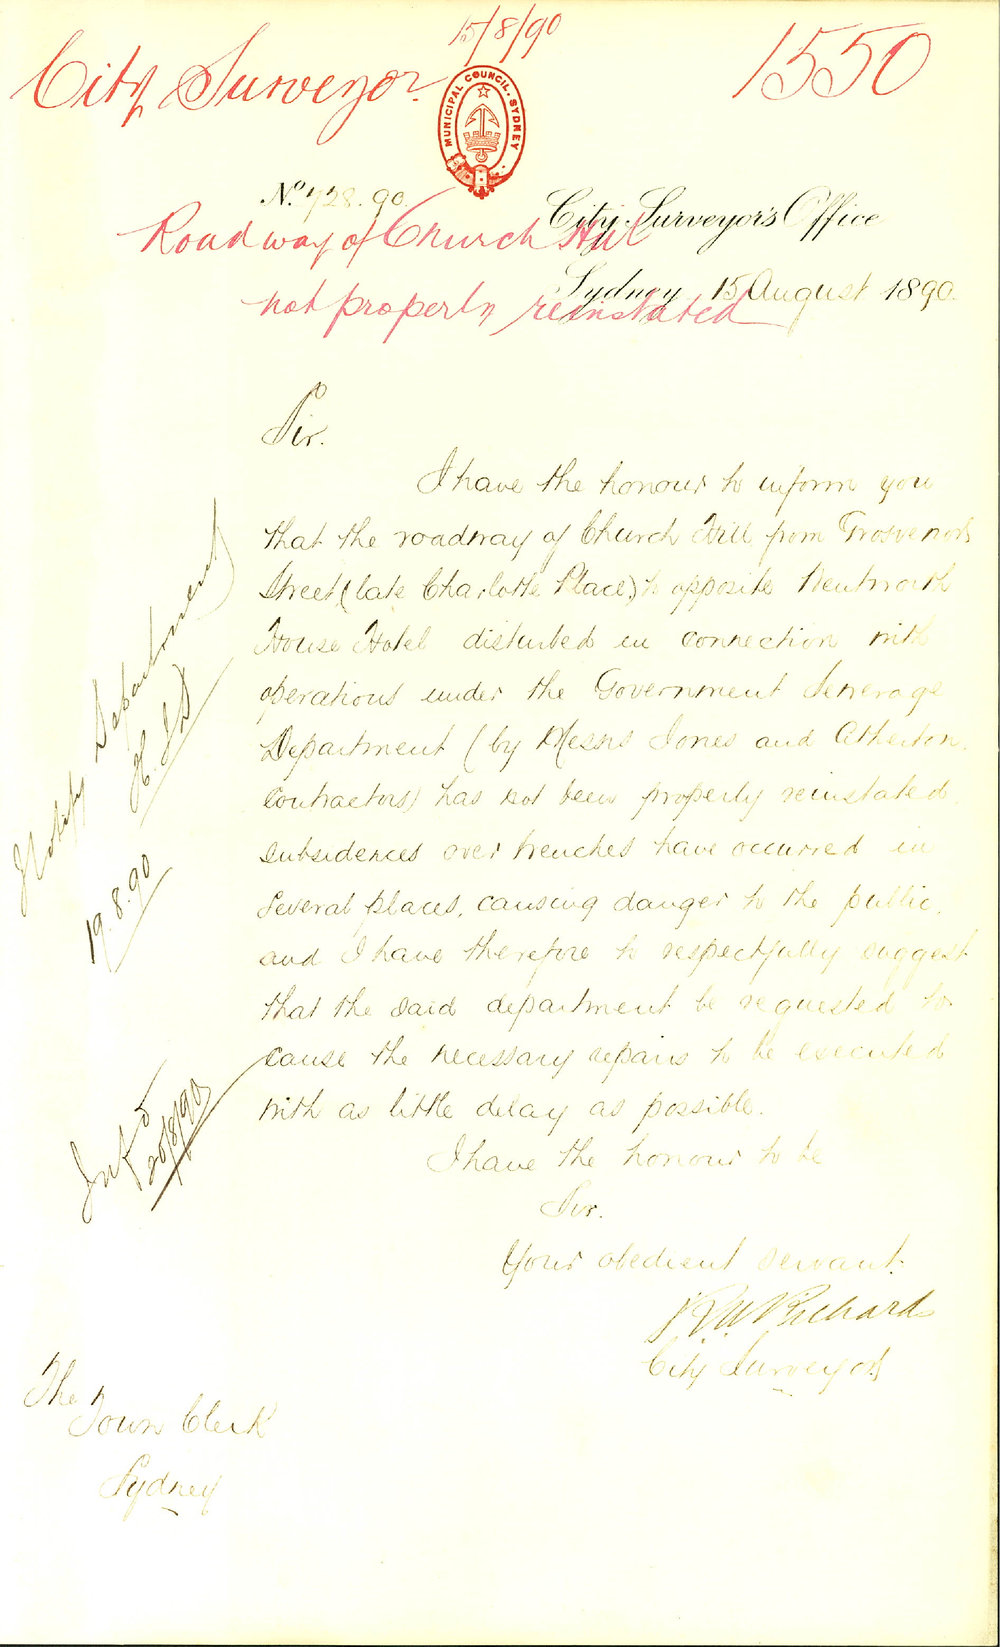 15/8/90
City Surveyor.
1550
MUNICIPAL COUNCIL. SYDNEY
No. 728.90.
City Surveyor's Office
Roadway of Church Hill
Sydney 15 August 1890.
not properly reinstated
Sir.
I have the honour to inform you
that the roadway of Church Hill from Grosvenor
Street (late Charlotte Place) to opposite Wentworth
House Hotel disturbed in connection with
operations under the Government Sewerage
Department (by Messrs Jones and Atherton.
Contractors) has not been properly reinstated.
Subsidences over trenches have occurred in
several places, causing danger to the public.
and I have therefore to respectfully suggest
that the said department be requested to
cause the necessary repairs to be executed
with as little delay as possible.
I have the honour to be
Sir.
Your obedient servant.
Richards
City Surveyor
The
Town Clerk
Sydney
Notify Department
19.8.90
20/8/90